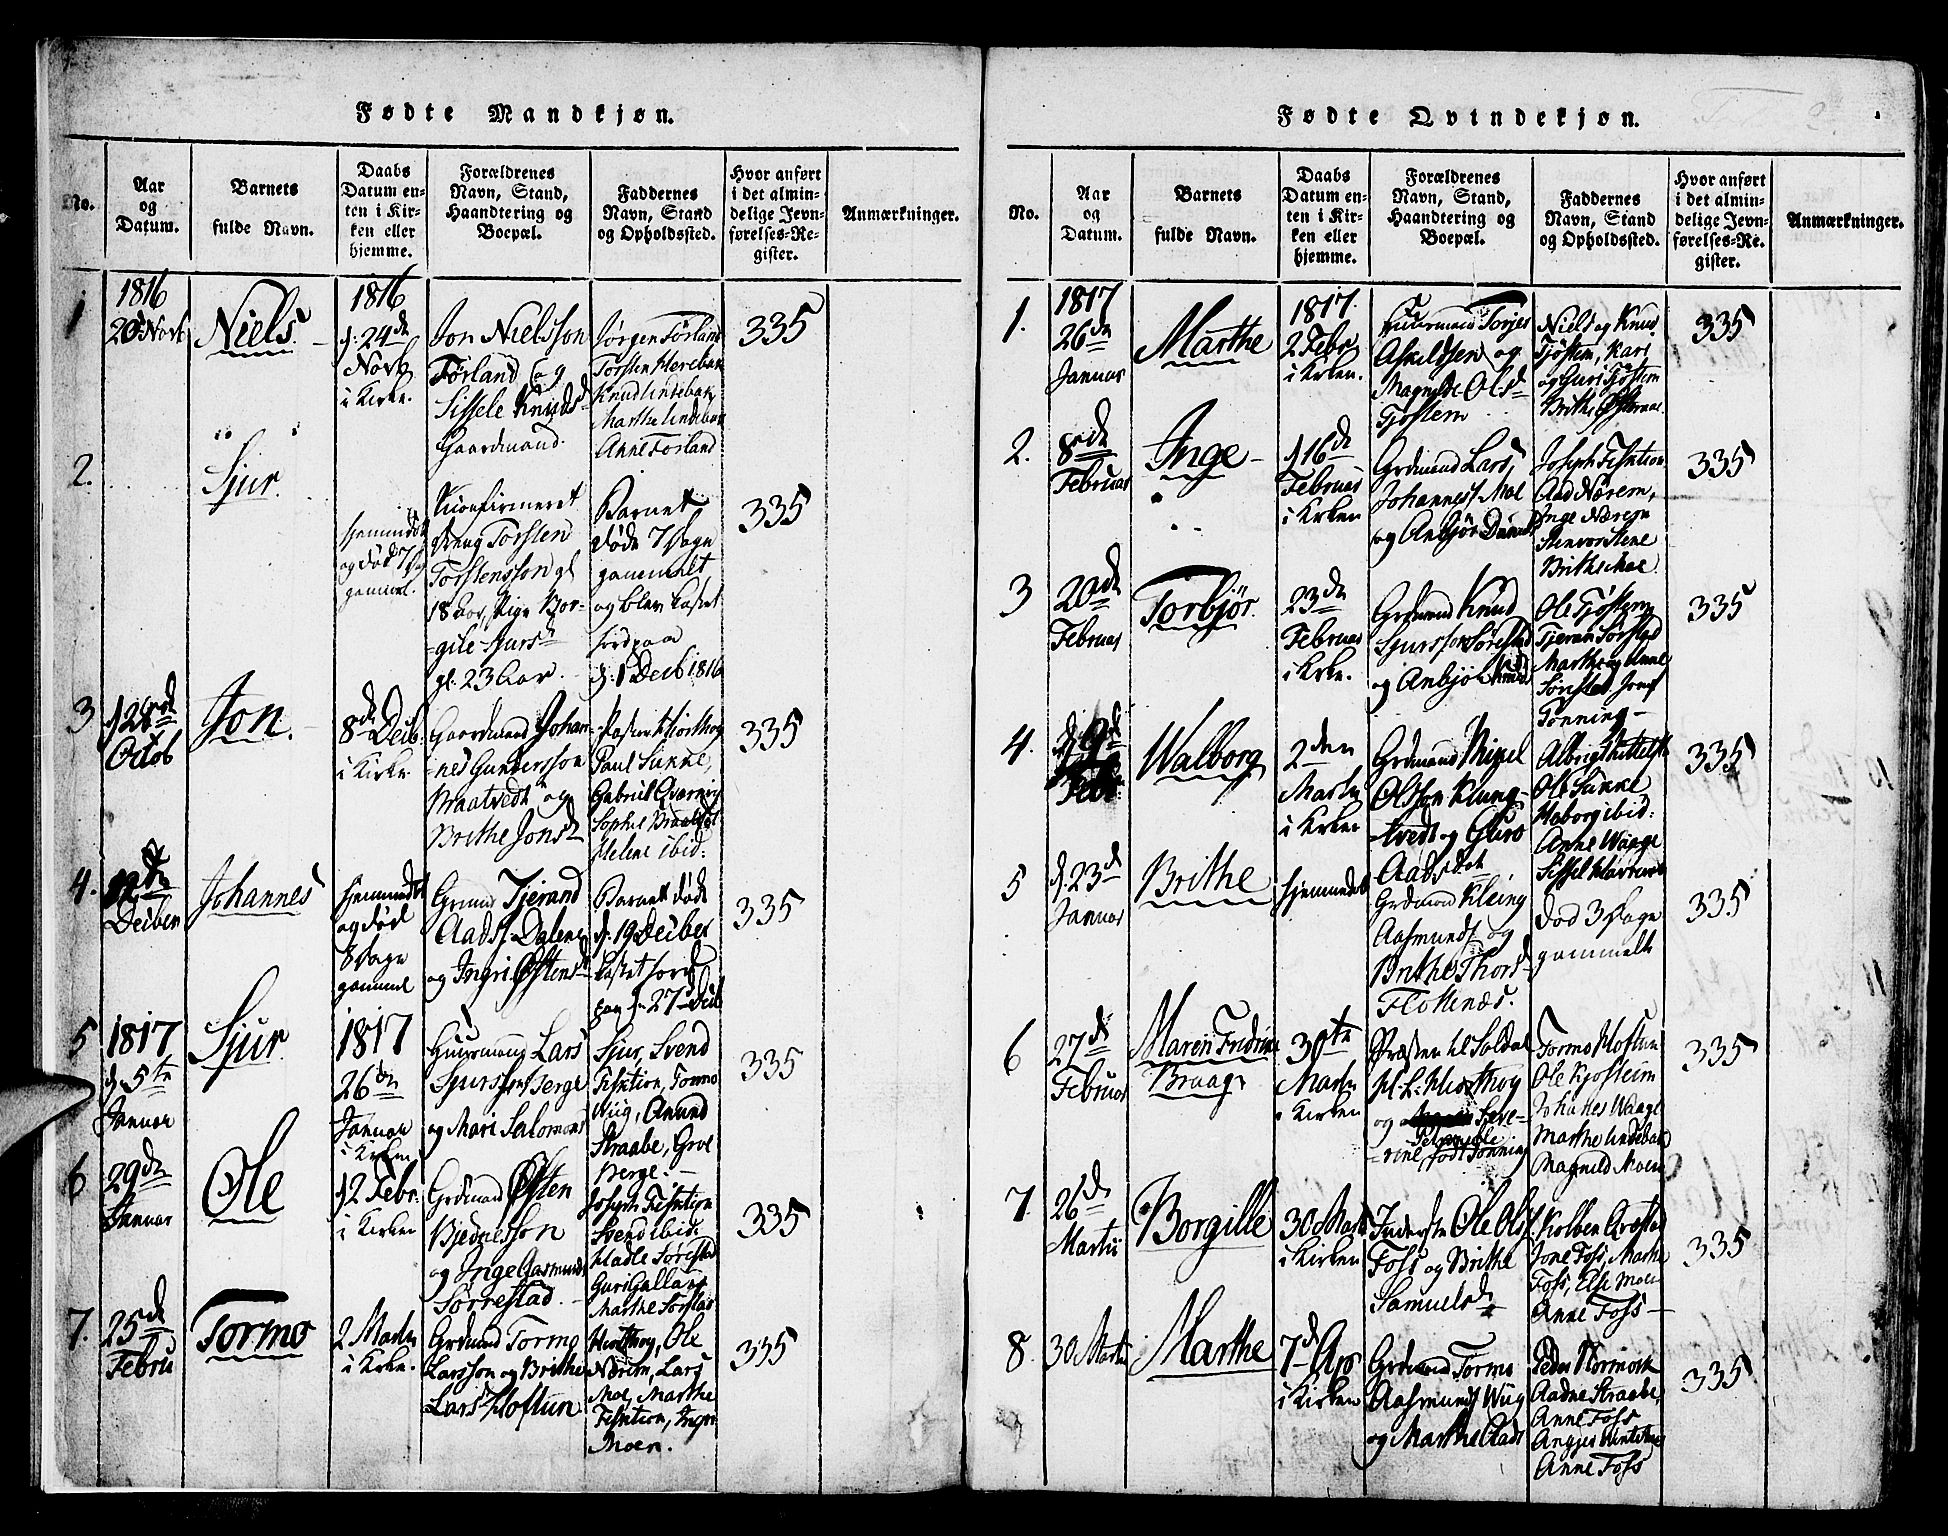 Fødte Mandkjøn.
No.
Aar
og
Datum.
Barnets
fulde Navn.
Daabs
Datum en-
ten i Kir-
ken eller
hjemme.
Forældrenes
Navn, Stand,
Haandtering og
Boepæl.
Faddernes
Navn, Stand
og Opholdssted.
Hvor anført
i det almin-
delige Jevn-
førelses-Re-
gister.
Anmærkninger.
1
1816
20 Novb
Niels.
1816
d. 24de
Novb
i Kirke.
Jon Nielsson
Førland og
Sissele Knudsd
Gaardmand.
Jørgen Førland
Torsten Herebak
Knud Lindebak
Marthe Lindebak
Anne Førland
335
2.
Sjur.
hjemmedøbt
og død 7 Dage
gammel.
Torsten
Torstensson gl
18 Aar, Pige Bor-
gile Sjurs-
gl. 23 Aar.
Barnet
døde 7 Dage
gammelt
og blev kastet
Jord paa
d. 1 Decb 1816
335
3
Octob
Jon.
8de Decb.
i Kirke
Gaardmand Johan-
nes Gunderson
Braatvedt og
Brithe Jonsd
Hiorthog
Paul Sunne,
Gabriel
Sophie
Helene ibid:
335
4.
12te
Decber
Johannes
hjemmedøbt
og død
8 Dage
gammel
Tjerand
Aads. Dalene
og Ingri Østensd
Barnet døde
d. 19 Decber
kastet Jord
paa d. 27de Decb
335
5
1817
d. 5te
Januar
Sjur.
1817
26de
Januar
i Kirken
Huusmand Lars
Sjursson Berge
og Mari Salomonsd
Sjur, Svend
Fisktion, Tormo
Wiig, Amund
Straabe, Groe
Berge.
335
6
29de
Januar
Ole
d. 2 Febr.
i Kirken
Grdmand Østen
Bjednesson
og Inge Aasmunds
Sørrestad.
Joseph Fisktion
Svend ibid.
Hadle Sørestad
Guri
Marthe Sørstad
335
7.
25de
Febru
Tormo
2 Martii
i Kirke.
Grdmand Tormo
Larsson og Brithe
Lars Hoftun
Hiorthog, Ole
Nærem, Lars
Moe, Marthe
Fisktion, Ingri
Moen.
335
Fødte Qvindekjøn.
No.
Aar
og
Datum.
Barnets
fulde Navn.
Daabs
Datum en-
ten i Kir-
ken eller
hjemme.
Forældrenes
Navn, Stand,
Haandtering og
Boepæl.
Faddernes
Navn, Stand
og Opholdssted.
Hvor anført
i det almin-
delige Jevn-
førelses-Re-
gister.
Anmærkninger.
1.
1817
26de
Januar
Marthe
1817.
2 Febr
i Kirken.
Huusmand Torjer
Askildsen og
Magnilde Olsd
Tjøstem
Niels og Knud
Tjøstem, Kari
og Guri Tjøstem
Brithe
335
2.
8de
Februar
Inge
d 16de
Februar
i Kirken
Grdmand Lars
Johanness. Moe
og Anbjør
Joseph Fisktion
Aad Nærem,
Inge Nærem
Stene
Brithe Moe
335
3
20de
Februar
Torbjør.
23de
Februar
i Kirke.
Grdmand Knud
Sjursson Sørestad
og Anbjør
Ole Tjøstem,
Tjeran Sørstad
Marthe og Anne
Sørestad
Tonning
335
4.
Feb
Walborg
2den
Martii
i Kirken
Grdmand Mikel
Olsson Kling-
tvedt og Guro
Aadsdat.
Ole Sunne
ibid:
Anne Waage
Sissel
335
5
d. 23de
Januar
Brithe
hjemmedøbt
Grdmand
Aasmunds. og
Brithe Thorsd
Flottenæs.
død 3 Dage
gammelt
335
6
27de
Februar
Maren Fredrine
Braage
30te
Martii
i Kirken
Præsten til Soldal
H. L. Hiorthog
og Seve-
rine, Petronelle
født Tonning
Tormo Hoftun
Ole Kjosheim
Johanes Waage
Marthe Lindebak
Magnild Moen
335
7
26de
Martii
Borgille
30 Martii
i Kirken
Inderste Ole Ols
Foss og Brithe
Samuelsd
Kolben Qvæstad
Jone Foss, Marthe
Foss, Else Moe
Anne Foss
335
8.
30 Martii
Marthe
7de Apr
i Kirken
Grdmand Tormo
Aasmunds Wiig
og Marthe Aads
Peder
Aadne Straabe,
Anne Foss
Anne Foss
335